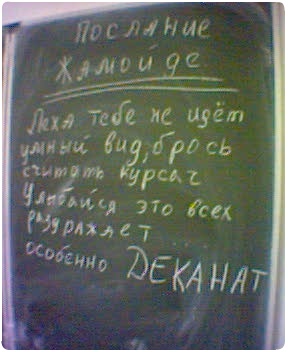 ПОСЛАНИЕ
ЖАМОЙДЕ
Леха тебе не идёт
умный вид, брось
считать курсач
Улыбайся это всех
раздражает
особенно ДЕКАНАТ